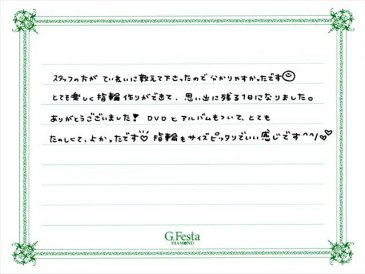 スタッフの方が ていねいに教えて下さったので分かりやすかったです☺
とても楽しく指輪作りができて、思い出に残る1日になりました。
ありがとうございました! DVDとアルバムもついて、とても
たのしくて、よかったです♡ 指輪もサイズピッタリでいい感じです^^/♡♡
G.Festa
DIAMOND